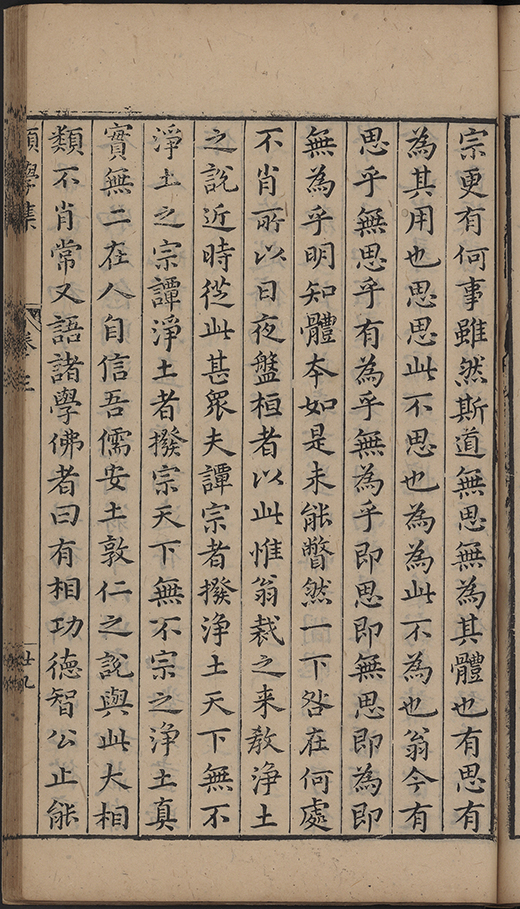 宗更有何事雖然斯道無思無為其體也有思有
為其用也思思此不思也為為此不為也翁今有
思乎無思乎有為乎無為乎即思即無思即為即
無為乎明知體本如是未能瞥然一下咎在何處
不肖所以日夜盤桓者以此惟翁裁之来教淨土
之説近時從此甚衆夫譚宗者撥淨土天下無不
淨土之宗譚淨土者撥宗天下無不宗之淨土真
實無二在人自信吾儒安土敦仁之說與此大相
類不肖常又語諸學佛者曰有相功德智公止能
學集
卷三
廿九